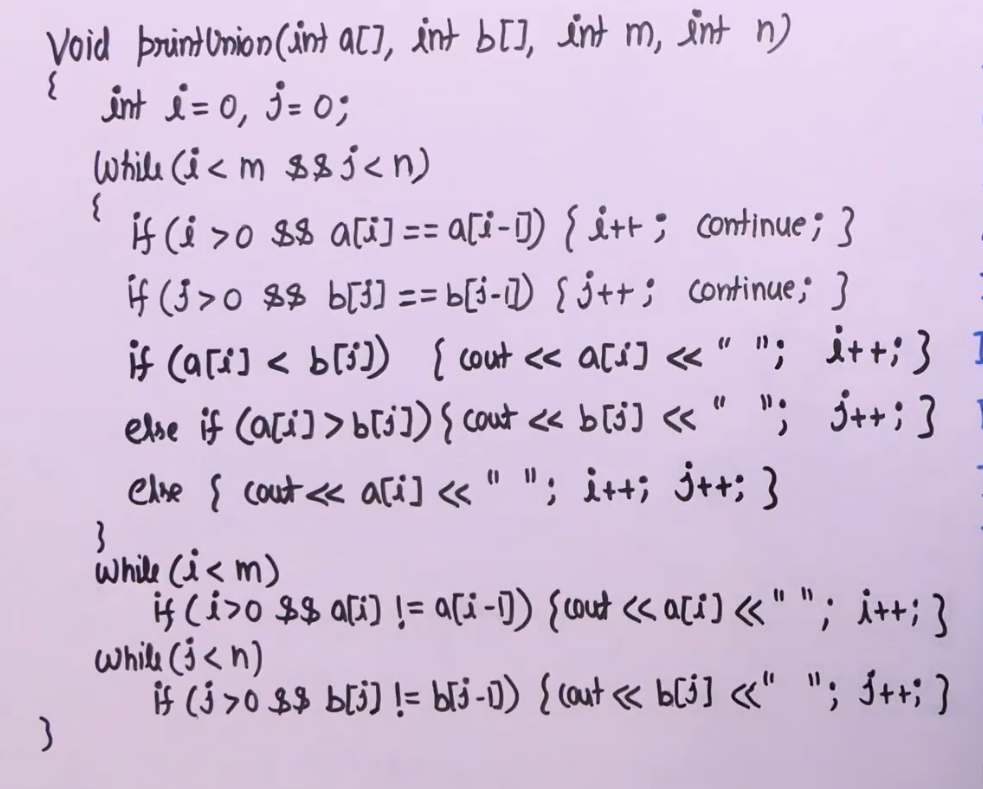 Void printUnion(int a[], int b[], int m, int n)
{
int i=0, j=0;
While (i<m && j<n)
{
if (i>0 && a[i]==a[i-1]) { i++; continue; }
if (j>0 && b[j]==b[j-1]) { j++; continue; }
if (a[i] < b[j]) { cout << a[i] << " "; i++; }
else if (a[i]>b[j]) { cout << b[j] << " "; j++; }
else { cout << a[i] << " "; i++; j++; }
}
While (i<m)
if (i>0 && a[i] != a[i-1]) {cout << a[i] << " "; i++; }
While (j<n)
if (j>0 && b[j] != b[j-1]) {cout << b[j] << " "; j++; }
}